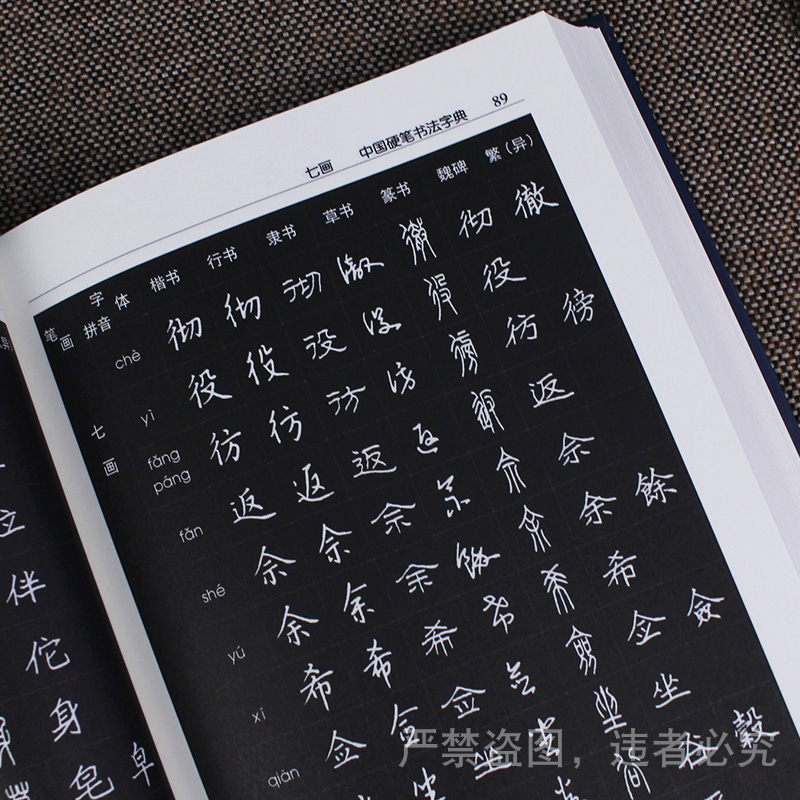 七画 中国硬笔书法字典 89
笔画 字体 拼音 楷书 行书 隶书 草书 篆书 魏碑 繁（异）
七画
chè 彻 彻 彻 彻 彻 彻 徹
yì 役 役 役 役 役 役
fǎng páng 彷 彷 彷 彷 彷 彷 徬
fǎn 返 返 返 返 返 返
shé 佘 佘 佘 佘 佘 佘
yú 余 余 余 余 余 余 餘
xī 希 希 希 希 希 希
qiān 佥 佥 佥 佥 佥 佥 僉
坐 坐 坐 坐 坐
谷 穀
伴
佗
身
皂 皁
严禁盗图，违者必究